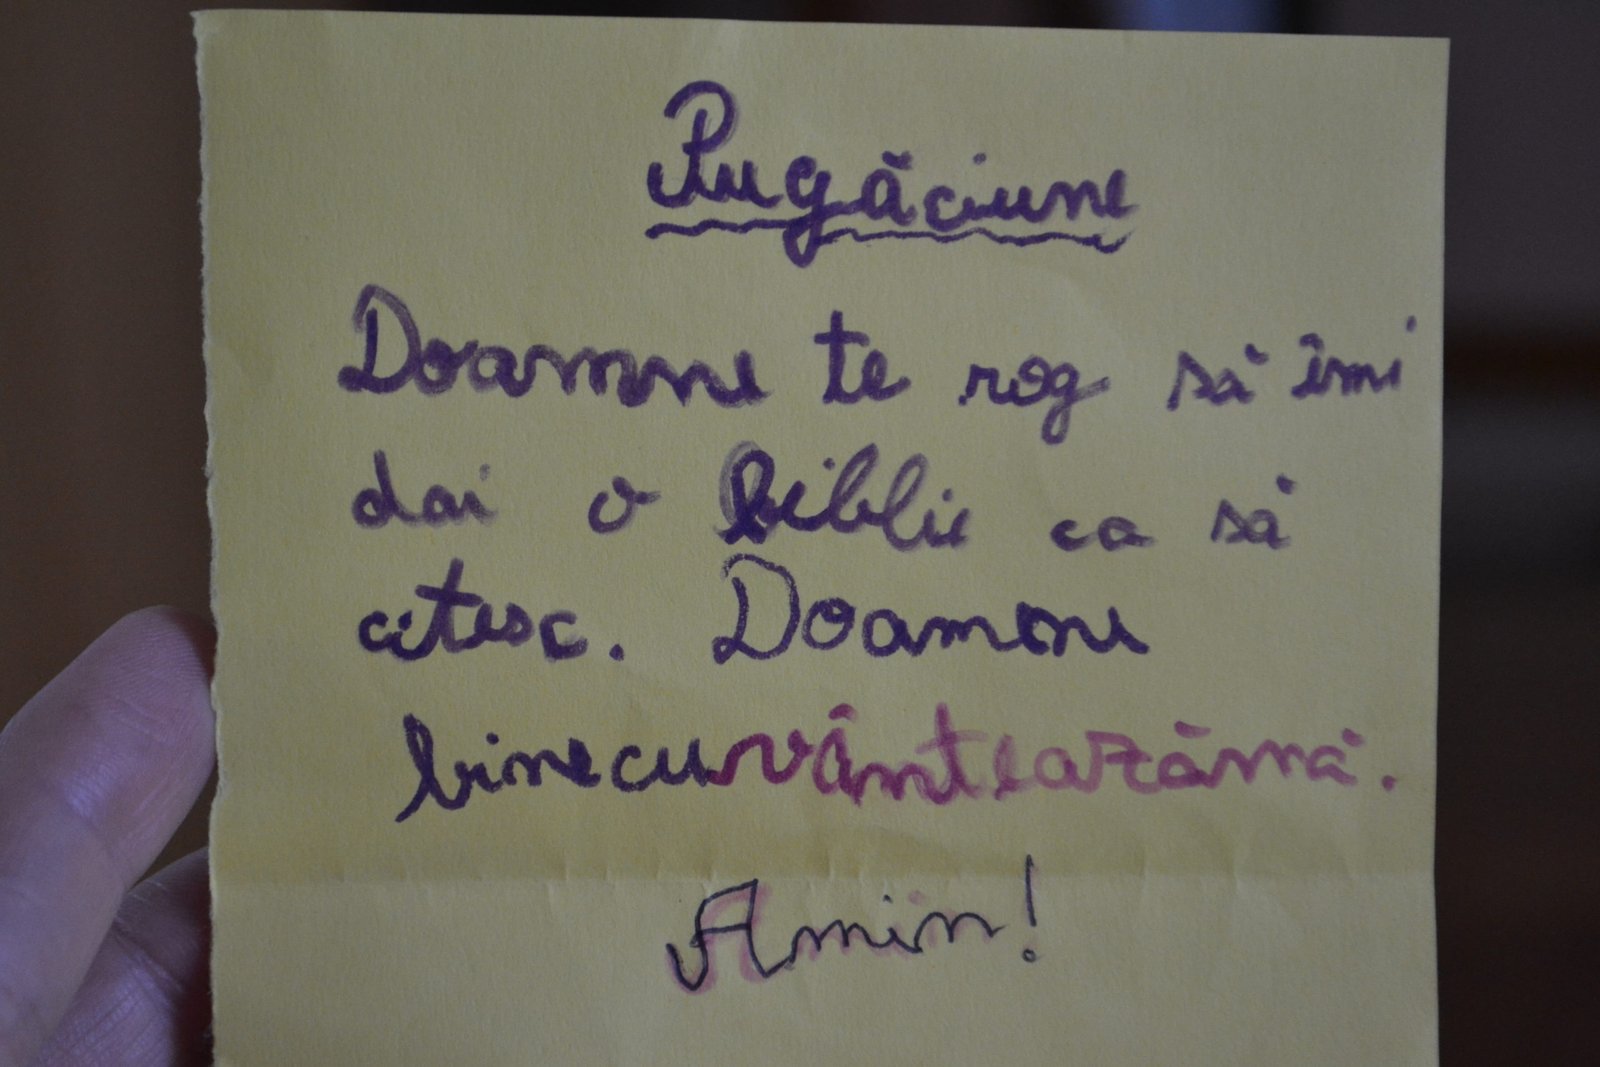 Rugăciune
Doamne te rog să îmi
dai o biblie ca să
citesc. Doamne
binecuvânteazămă.
Amin!